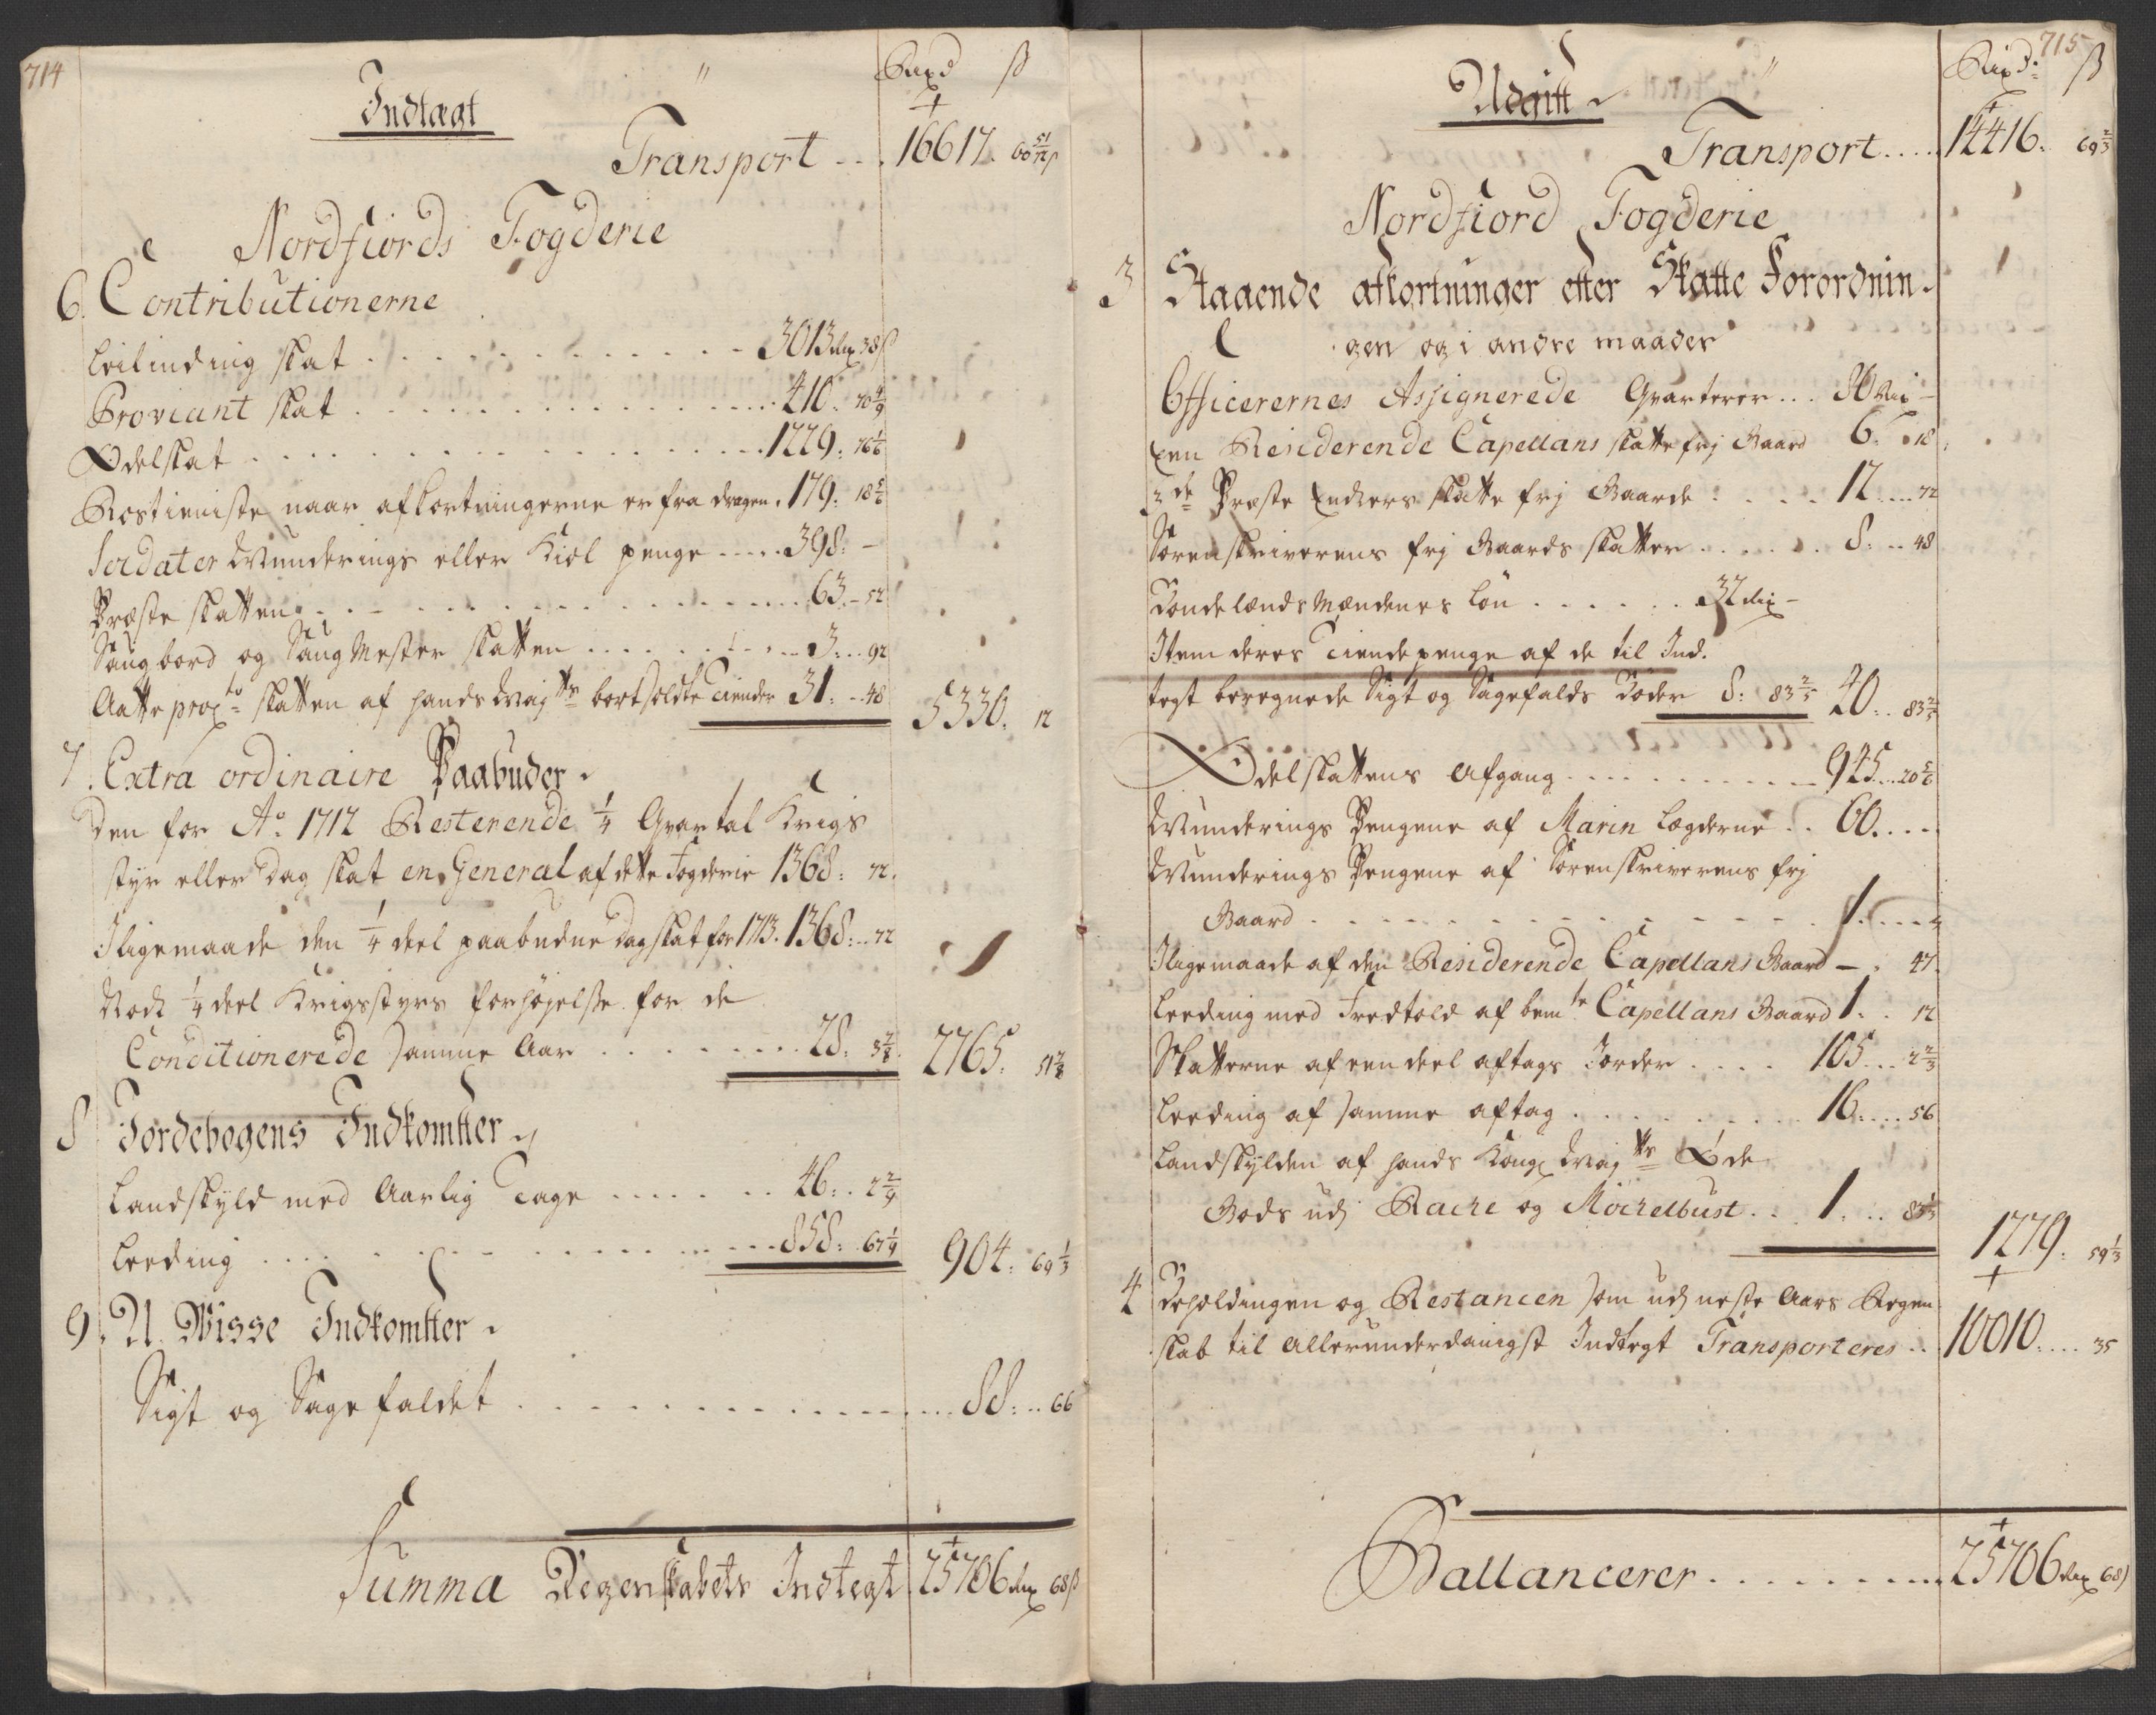 714
Indtægt
Rixd ß
Transport - - - 16617. 60 51/72 ß
Nordfiords Fogderie
6. Contributionerne
Leilending skat - - - 3013 Rix 38ß
Proviant skat - - - 410: 70 4/9
Odelskat - - - 1229: 76 1/6
Rostieniste naar afkortningerne er fra dragen. 179: 18 5/6
Soldater Munderings eller Kiol penge - - - 398: -
Præste skatten - - - 63. - 52
Saugbord og Saug Mester skatten - - - 3: - 92
Aatte proc:to skatten af hands May:tts bortsoldte Tiender 31: - 48 5330: 12
7. Extra ordinaire Paabuder
Den for A:o 1712 Resterende 1/4 Qvartal Krigs
styr eller Dag skat en General af dette Fogderie 1368: 72.
Iligemaade den 1/4 deel paabudne dagskat for 1713. 1368: - 72
Noch 1/4 deel Krigsstyrs forhøjelse for de
Conditionerede samme Aar - - - 28: 3 2/8. 2765: 51 2/8
8 Jordebogens Indkomster
Landskyld med Aarlig Tage - - - 46: - 2 2/9
Leeding - - - 858: 67 1/9 904: 69 1/3
9. U. Wisse Indkomster
Sigt og Sagefaldet - - - 88: - 66
Summa Regenskabets Indtegt 25706 Rix 68ß
715
Udgift
Rixd: ß
Transport - - - 14416: 69 2/3
Nordfiord Fogderie
3 Staaende afkortninger efter Skatte Forordnin-
gen og i andre maader
Officerernes Assignerede Qvarterer - - - 86 Rix -
Een Residerende Capellans skatte frj Gaard 6: - 18
2de Præste Enchers skatte frj Gaarde - - - 12 - - 72
Sorenskriverens frj Gaards skatter - - - 8: - 48
Bondelænds Mændenes Løn - - - 32 Rix -
Item deres Tiende penge af de til Ind-
tegt beregnede Sigt og Sagefalds Bøder 8: 83 2/5 40: 83 2/5
Odelskattens Afgang - - - 945 - 20 5/6
Munderings Pengene af Marin Lægderne - - 60. - -
Munderings Pengene af Sorenskriverens frj
Gaard - - - 1. - - 4
Iligemaade af den Residerende Capellans Gaard - . 47.
Leeding med Fredtold af bem:te Capellans Gaard 1. . 12
Skatterne af een deel aftags Jorder - - - 105 - - 2 2/3
Leeding af samme aftag - - - 16: - - 56
Landskylden af hands Kongl May:tts Øde
Gods udj Rache og Mochelbust - - 1. - - 85 1/3 1279: 59 1/3
4 Beholdingen og Restancen som udj neste Aars Regen-
skab til Allerunderdanigst Indtegt Transporteres - - 10010 - - 35
Ballancerer - - - 25706 Rix 68ß